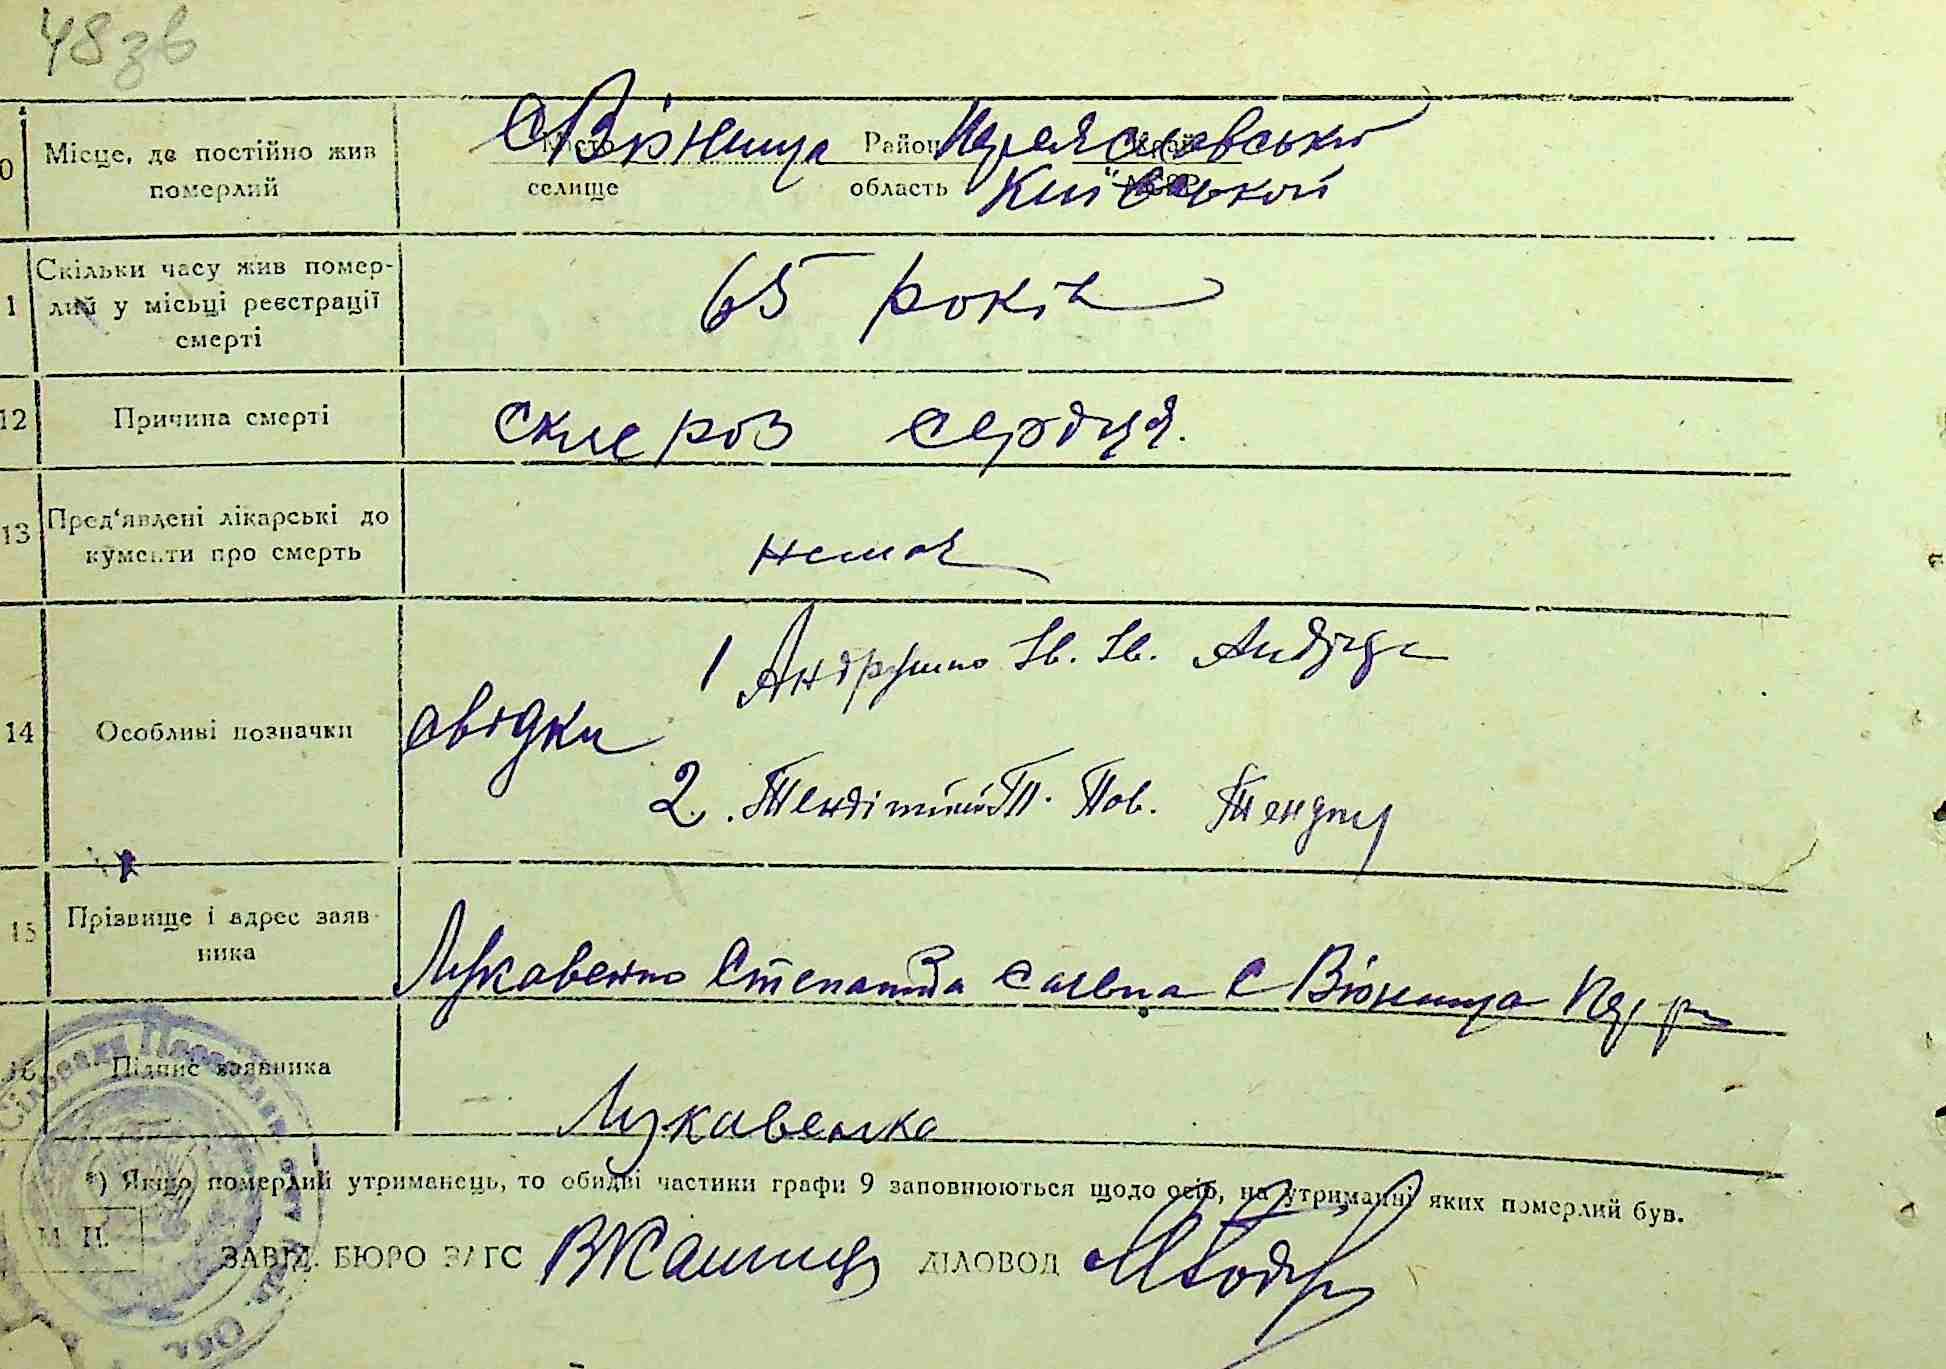 48 зв
0 Місце, де постійно жив
померлий
с Вюнища Район Переяславський
Місто
селище область Київської
1 Скільки часу жив помер-
лий у місьці реєстрації
смерті
65 років
12 Причина смерті склероз сердця.
13 Пред'явлені лікарські до
кументи про смерть
немає
14 Особливі позначки свідки
1 Андрушко Ів. Ів.
2. Пав.
15 Прізвище і адрес заяв-
ника
Лукавенко Степанида с Вюнища
16 Підпис заявника
Лукавенко
*) Якщо померлий утриманець, то обидві частини графи 9 заповнюються щодо осіб, на утриманні яких померлий був.
М. П.
ЗАВІД. БЮРО ЗАГС ДІЛОВОД